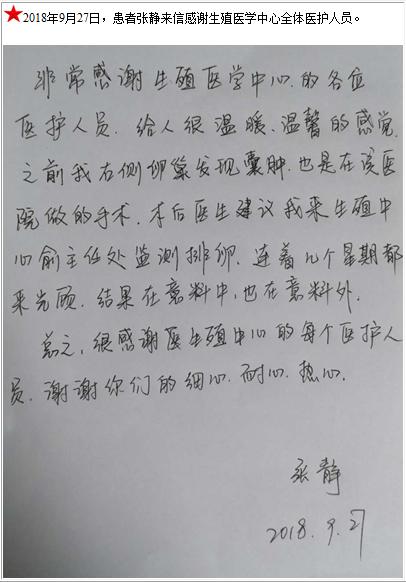 ★2018年9月27日，患者张静来信感谢生殖医学中心全体医护人员。
非常感谢生殖医学中心的各位
医护人员.给人很温暖.温馨的感觉.
之前我右侧卵巢发现囊肿.也是在该医
院做的手术.术后医生建议我来生殖中
心俞主任处监测排卵.连着几个星期都
来光顾.结果在意料中,也在意料外.
总之,很感谢医生殖中心的每个医护人
员.谢谢你们的细心.耐心.热心.
张静
2018.9.27